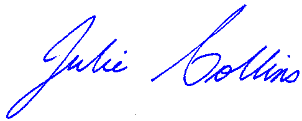 Julie Collins